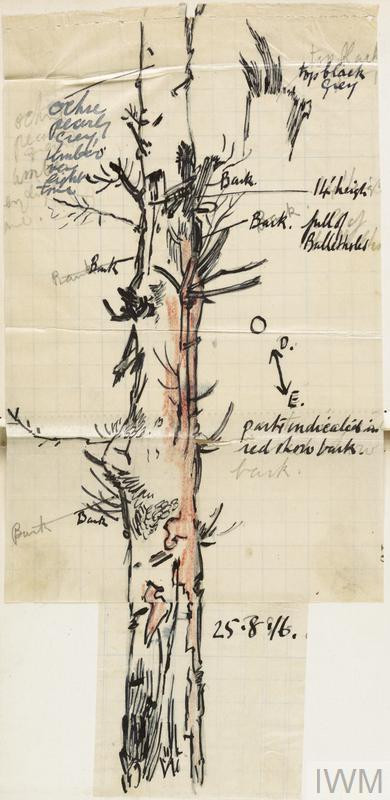 top black
Grey
ochre
pearly
Grey
umber
very
light
tone
Bark.
14 height
Bark. full of
Bullet holes
Bark
O
D.
E.
parts indicated in
red show bark
bark.
Bark
Bark
25.8.16.
IWM